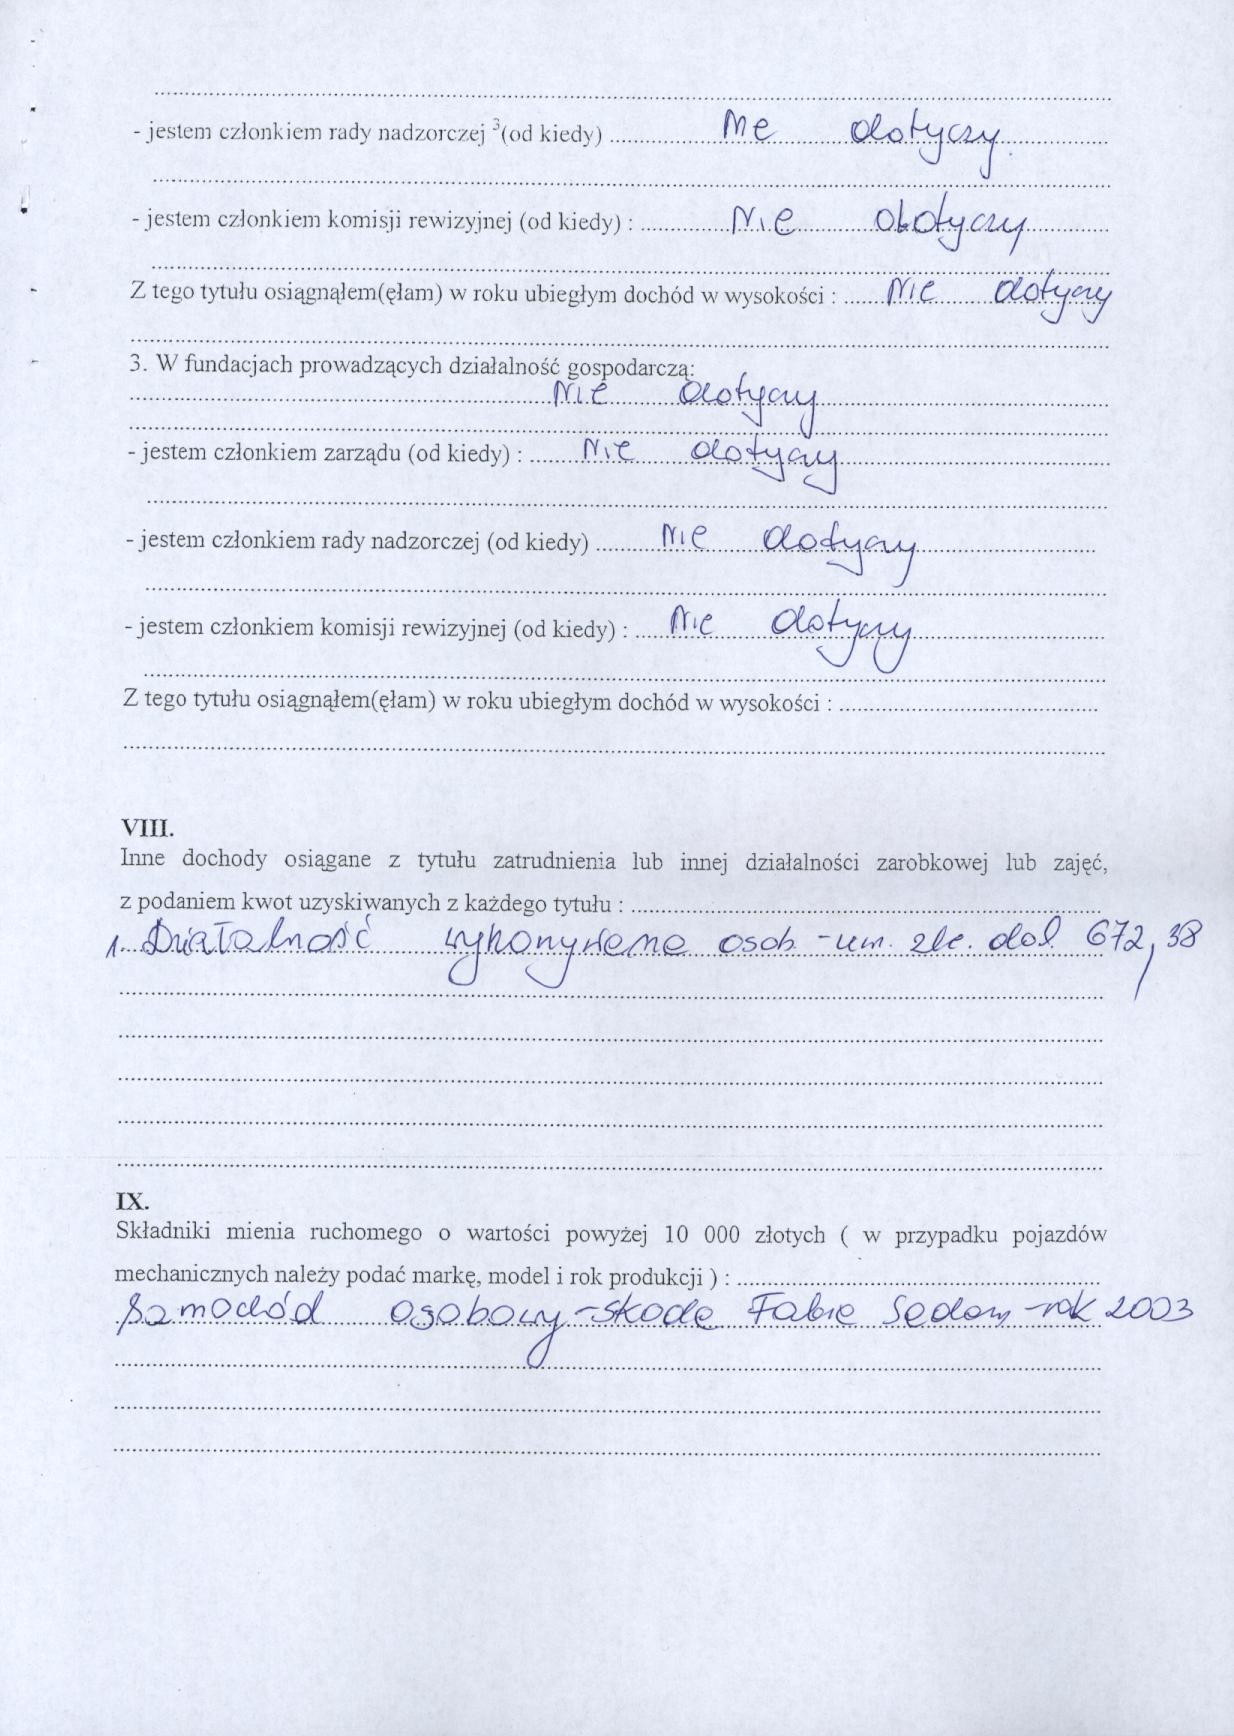 - jestem członkiem rady nadzorczej ³(od kiedy) ........ Nie dotyczy
- jestem członkiem komisji rewizyjnej (od kiedy) : ........ Nie dotyczy
Z tego tytułu osiągnąłem(ęłam) w roku ubiegłym dochód w wysokości : ...... Nie dotyczy
3. W fundacjach prowadzących działalność gospodarczą:
Nie dotyczy
- jestem członkiem zarządu (od kiedy) : ...... Nie dotyczy
- jestem członkiem rady nadzorczej (od kiedy) ........ Nie dotyczy
- jestem członkiem komisji rewizyjnej (od kiedy) : ..... Nie dotyczy
Z tego tytułu osiągnąłem(ęłam) w roku ubiegłym dochód w wysokości : ........
VIII.
Inne dochody osiągane z tytułu zatrudnienia lub innej działalności zarobkowej lub zajęć,
z podaniem kwot uzyskiwanych z każdego tytułu : ........
1. Działalność wykonywana osob. - um. zle. doch. 672,38
IX.
Składniki mienia ruchomego o wartości powyżej 10 000 złotych ( w przypadku pojazdów
mechanicznych należy podać markę, model i rok produkcji ) : ........
Samochód osobowy - Skoda Fabia Sedan - rok 2003